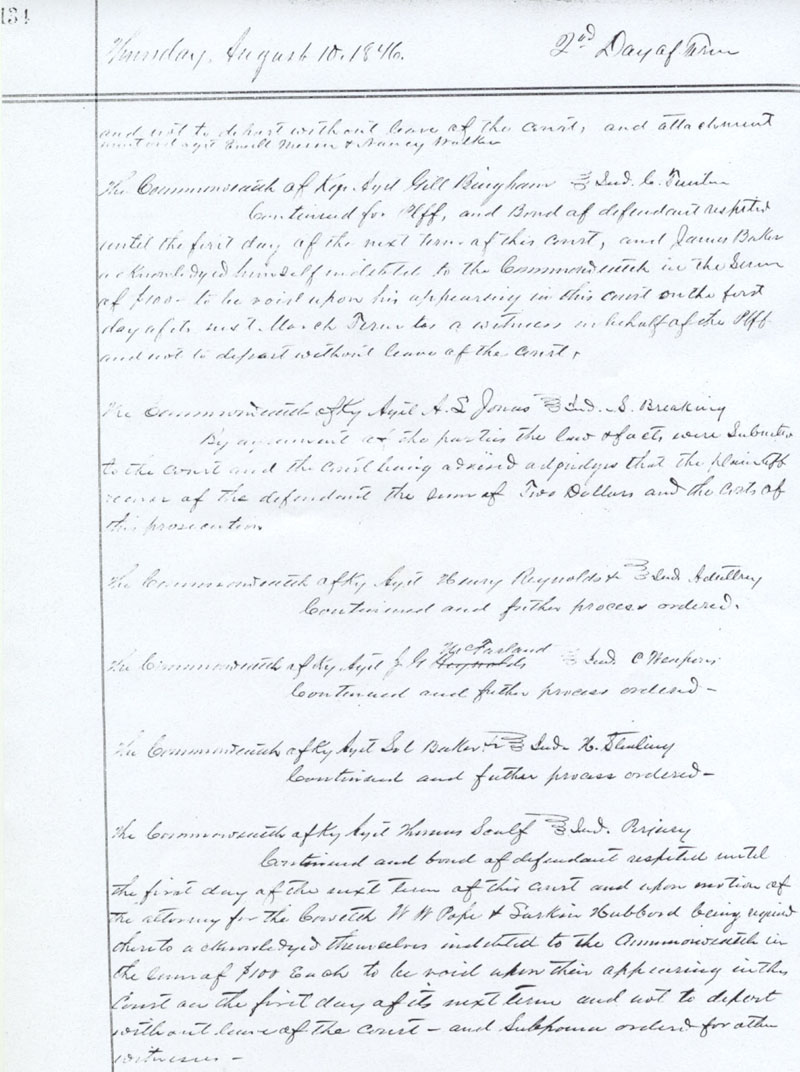 134
Thursday, August 10. 1846. 2nd Day of Term
and not to depart without leave of the court, and attachment
agst & Nancy Walker
The Commonwealth of Ky. Agst Gill Bingham Ind. C.
Continued for Plff, and Bond of defendant respited
until the first day of the next term of this court, and James Baker
acknowledged himself indebted to the Commonwealth in the Sum
of $100 - to be void upon his appearing in this court on the first
day of its next March Term as a witness in behalf of the Plff
and not to depart without leave of the court,
The Commonwealth of Ky Agst A. L Jones Ind. S. Breaking
By agreement of the parties the law & facts were Submitted
to the court and the court being advised adjudges that the plaintiff
recover of the defendant the sum of Two Dollars and the costs of
this prosecution
The Commonwealth of Ky Agst Henry Reynolds & Ind Adultery
Continued and futher process ordered.
McFarland
The Commonwealth of Ky Agst J. G Reynolds Ind C Weapons
Continued and futher process ordered -
The Commonwealth of Ky Agst Sol Baker & Ind. H. Stealing
Continued and futher process ordered -
The Commonwealth of Ky Agst Thomas Scalf Ind. Perjury
Continued and bond of defendant respited until
the first day of the next term of this court and upon motion of
the attorney for the Cowelth W W Pope & Larkin Hubbard being required
thereto acknowledged themselves indebted to the Commonwealth in
the sum of $100 Each to be void upon their appearing in this
Court on the first day of its next term and not to depart
without leave of the court - and Subpoena ordered for other
witnesses -